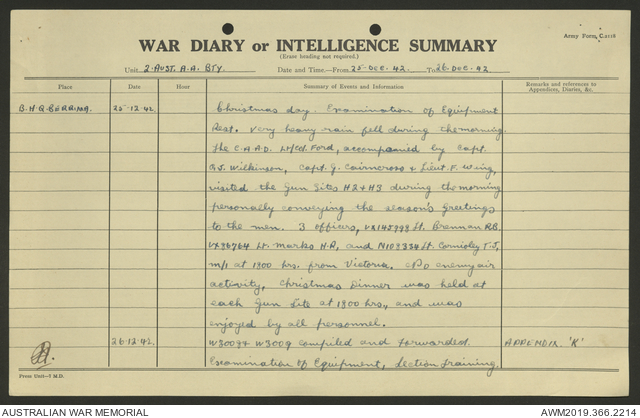 Army Form, C.2118
WAR DIARY or INTELLIGENCE SUMMARY
(Erase heading not required.)
Unit 2. AUST. A.A. BTY. Date and Time—From 25-DEC-42. To 26-DEC-42
Place Date Hour Summary of Events and Information Remarks and references to Appendices, Diaries, &c.
B.H.Q. BERRIMA. 25-12-42. Christmas day. Examination of Equipment
Rest. Very heavy rain fell during the morning.
The C.A.A.D. Lt/Col. Ford, accompanied by Capt.
Wilkinson, Capt. J. Cairncross & Lieut. F. Wing,
visited the Gun Sites H2 & H3 during the morning
personally conveying the season's greetings
to the men. 3 officers, VX145998 Lt. Brennan R.B.
Lt. Marks H.R, and N108334 Lt. T.J,
m/i at 1800 hrs. from Victoria. No enemy air
activity, Christmas Dinner was held at
each Gun Site at 1800 hrs., and was
enjoyed by all personnel.
26-12-42. W3009 compiled and forwarded. APPENDIX. 'K'
Examination of Equipment, Section training.
Press Unit—7 M.D.
AUSTRALIAN WAR MEMORIAL AWM2019.366.2214